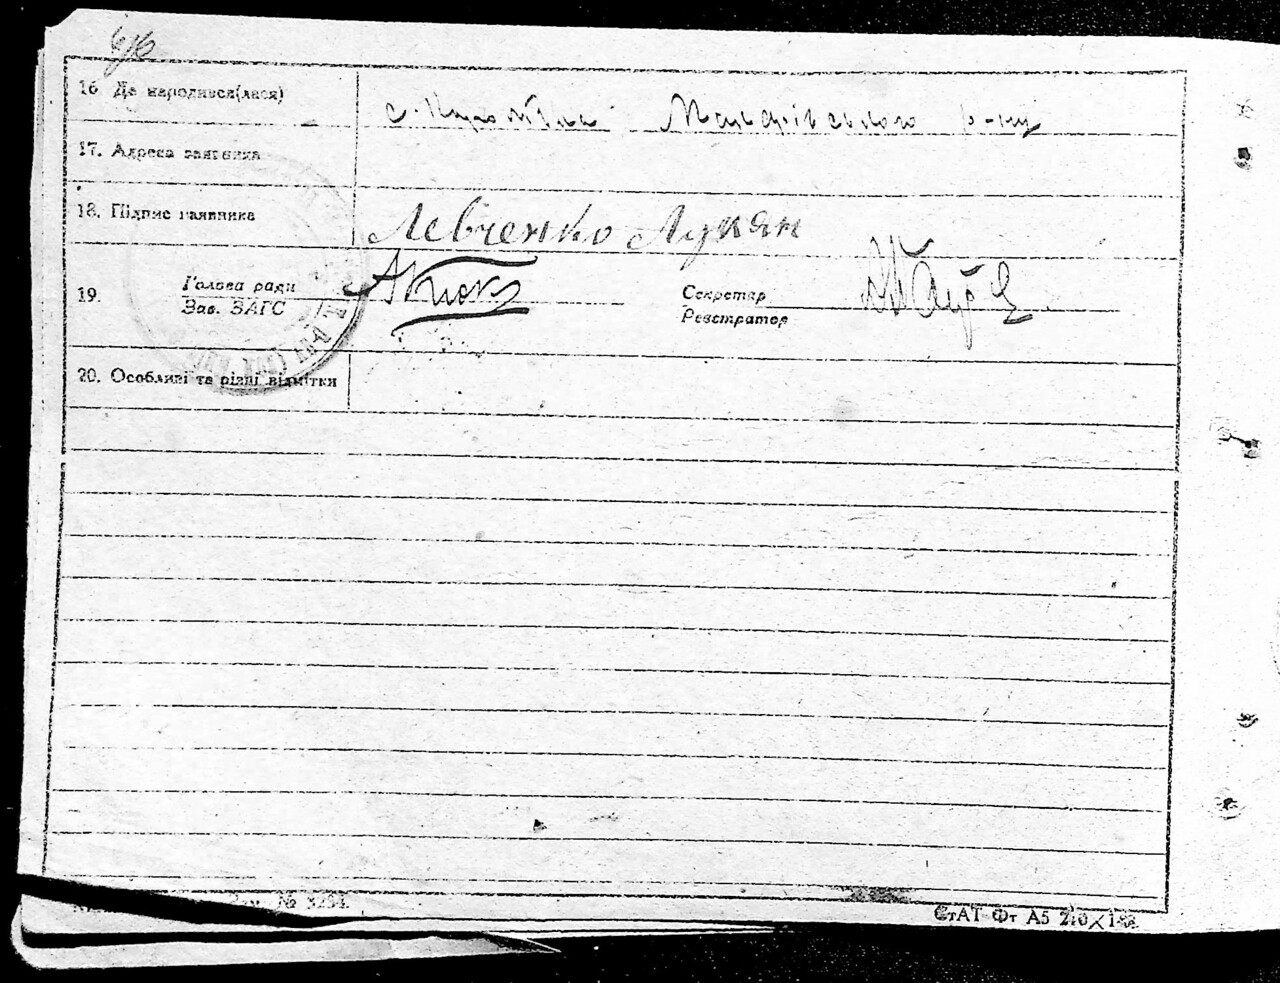 16. Де народився(лася)
с. Макарівського р-ну
17. Адреса заявника
18. Підпис заявника Левченко Лукян
19. Голова ради
Зав. ЗАГС
Секретар
Реєстратор
20. Особливі та різні відмітки
Зам. № 3254.
СтАТ Фт А5 210×148